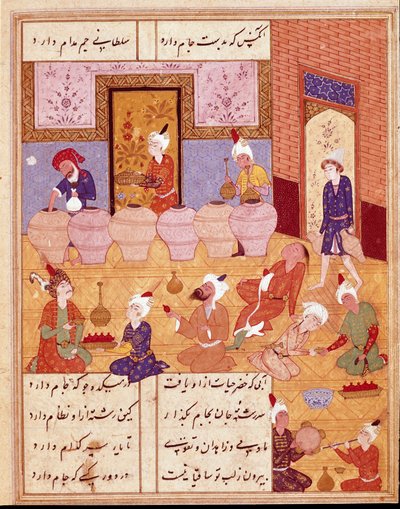 آنکس که بدست جام دارد سلطانی جم مدام دارد
آبی که خضر حیات ازو یافت در میکده جو که جام دارد
سررشته جان بجام بگذار کین رشته ازو نظام دارد
ما و می و زاهدان و تقوی تا یار سر کدام دارد
بیرون ز لب تو ساقیا نیست در دور کسی که کام دارد